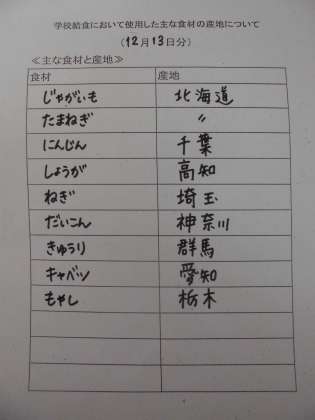 学校給食において使用した主な食材の産地について
(12月13日分)
≪主な食材と産地≫
食材 産地
じゃがいも 北海道
たまねぎ 〃
にんじん 千葉
しょうが 高知
ねぎ 埼玉
だいこん 神奈川
きゅうり 群馬
キャベツ 愛知
もやし 栃木